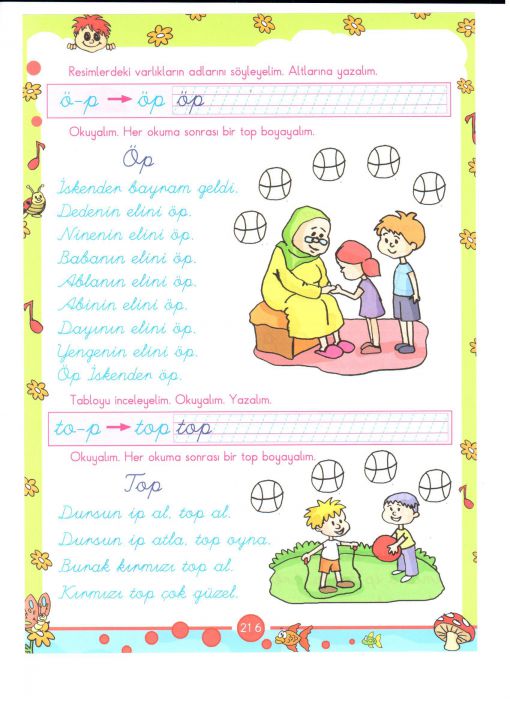 Resimlerdeki varlıkların adlarını söyleyelim. Altlarına yazalım.
ö-p → öp öp
Okuyalım. Her okuma sonrası bir top boyayalım.
Öp
İskender bayram geldi.
Dedenin elini öp.
Ninenin elini öp.
Babanın elini öp.
Ablanın elini öp.
Abinin elini öp.
Dayının elini öp.
Yengenin elini öp.
Öp İskender öp.
Tabloyu inceleyelim. Okuyalım. Yazalım.
to-p → top top
Okuyalım. Her okuma sonrası bir top boyayalım.
Top
Dursun ip al, top al.
Dursun ip atla, top oyna.
Burak kırmızı top al.
Kırmızı top çok güzel.
216